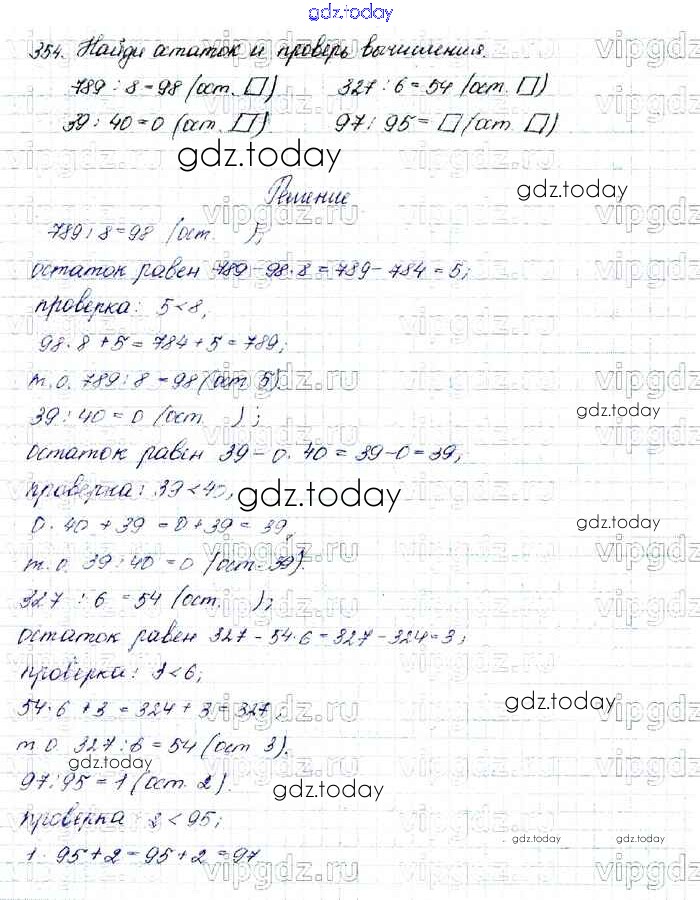 gdz.today
354. Найди остаток и проверь вычисления.
789 : 8 = 98 (ост. □) 327 : 6 = 54 (ост. □)
39 : 40 = 0 (ост. □). 97 : 95 = □ (ост. □)
gdz.today
gdz.today
Решение
789 : 8 = 98 (ост. );
остаток равен 789 - 98·8 = 789 - 784 = 5;
проверка: 5 < 8,
98·8 + 5 = 784 + 5 = 789;
т.о. 789 : 8 = 98 (ост 5).
39 : 40 = 0 (ост. );
gdz.today
остаток равен 39 - 0·40 = 39 - 0 = 39;
проверка: 39 < 40,
gdz.today
0·40 + 39 = 0 + 39 = 39,
gdz.today
т.о. 39 : 40 = 0 (ост. 39).
327 : 6 = 54 (ост. );
остаток равен 327 - 54·6 = 327 - 324 = 3;
проверка: 3 < 6;
54·6 + 3 = 324 + 3 = 327;
gdz.today
т о. 327 : 6 = 54 (ост 3).
gdz.today
97 : 95 = 1 (ост. 2).
gdz.today
проверка 2 < 95;
gdz.today
gdz.today
1·95 + 2 = 95 + 2 = 97
vipgdz.ru